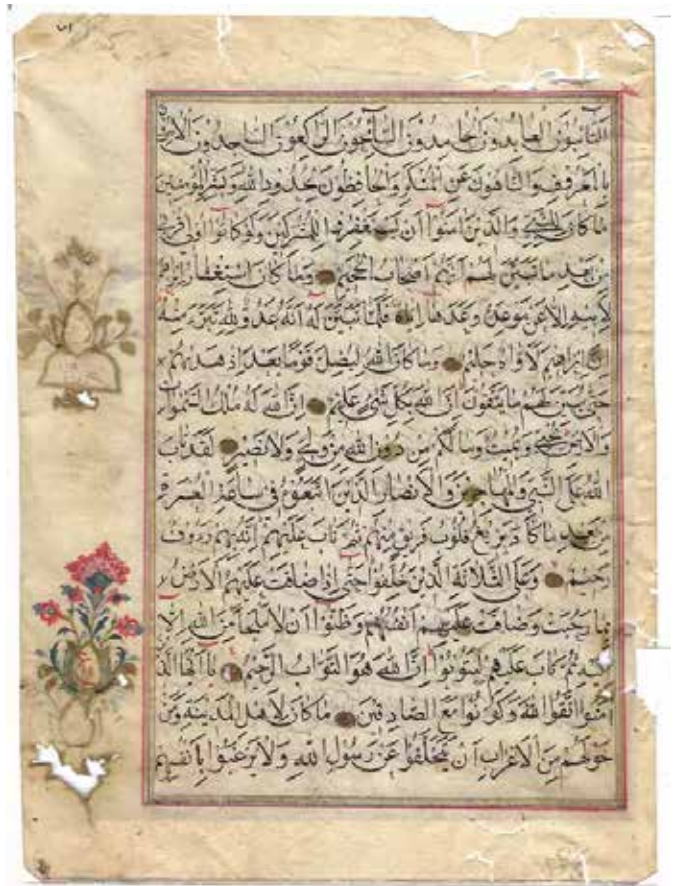 اَلتَّائِبُونَ الْعَابِدُونَ الْحَامِدُونَ السَّائِحُونَ الرَّاكِعُونَ السَّاجِدُونَ الْآمِرُونَ
بِالْمَعْرُوفِ وَالنَّاهُونَ عَنِ الْمُنْكَرِ وَالْحَافِظُونَ لِحُدُودِ اللّٰهِ وَبَشِّرِ الْمُؤْمِنِينَ
مَا كَانَ لِلنَّبِيِّ وَالَّذِينَ آمَنُوا أَنْ يَسْتَغْفِرُوا لِلْمُشْرِكِينَ وَلَوْ كَانُوا أُولِي قُرْبَى
مِنْ بَعْدِ مَا تَبَيَّنَ لَهُمْ أَنَّهُمْ أَصْحَابُ الْجَحِيمِ وَمَا كَانَ اسْتِغْفَارُ إِبْرَاهِيمَ
لِأَبِيهِ إِلَّا عَنْ مَوْعِدَةٍ وَعَدَهَا إِيَّاهُ فَلَمَّا تَبَيَّنَ لَهُ أَنَّهُ عَدُوٌّ لِلّٰهِ تَبَرَّأَ مِنْهُ
إِنَّ إِبْرَاهِيمَ لَأَوَّاهٌ حَلِيمٌ وَمَا كَانَ اللّٰهُ لِيُضِلَّ قَوْمًا بَعْدَ إِذْ هَدٰيهُمْ
حَتّٰى يُبَيِّنَ لَهُمْ مَا يَتَّقُونَ إِنَّ اللّٰهَ بِكُلِّ شَيْءٍ عَلِيمٌ إِنَّ اللّٰهَ لَهُ مُلْكُ السَّمٰوَاتِ
وَالْأَرْضِ يُحْيِي وَيُمِيتُ وَمَا لَكُمْ مِنْ دُونِ اللّٰهِ مِنْ وَلِيٍّ وَلَا نَصِيرٍ لَقَدْ تَابَ
اللّٰهُ عَلَى النَّبِيِّ وَالْمُهَاجِرِينَ وَالْأَنْصَارِ الَّذِينَ اتَّبَعُوهُ فِي سَاعَةِ الْعُسْرَةِ
مِنْ بَعْدِ مَا كَادَ يَزِيغُ قُلُوبُ فَرِيقٍ مِنْهُمْ ثُمَّ تَابَ عَلَيْهِمْ إِنَّهُ بِهِمْ رَءُوفٌ
رَحِيمٌ وَعَلَى الثَّلَاثَةِ الَّذِينَ خُلِّفُوا حَتّٰى إِذَا ضَاقَتْ عَلَيْهِمُ الْأَرْضُ
بِمَا رَحُبَتْ وَضَاقَتْ عَلَيْهِمْ أَنْفُسُهُمْ وَظَنُّوا أَنْ لَا مَلْجَأَ مِنَ اللّٰهِ إِلَّا
إِلَيْهِ ثُمَّ تَابَ عَلَيْهِمْ لِيَتُوبُوا إِنَّ اللّٰهَ هُوَ التَّوَّابُ الرَّحِيمُ يَا أَيُّهَا الَّذِينَ
آمَنُوا اتَّقُوا اللّٰهَ وَكُونُوا مَعَ الصَّادِقِينَ مَا كَانَ لِأَهْلِ الْمَدِينَةِ وَمَنْ
حَوْلَهُمْ مِنَ الْأَعْرَابِ أَنْ يَتَخَلَّفُوا عَنْ رَسُولِ اللّٰهِ وَلَا يَرْغَبُوا بِأَنْفُسِهِمْ